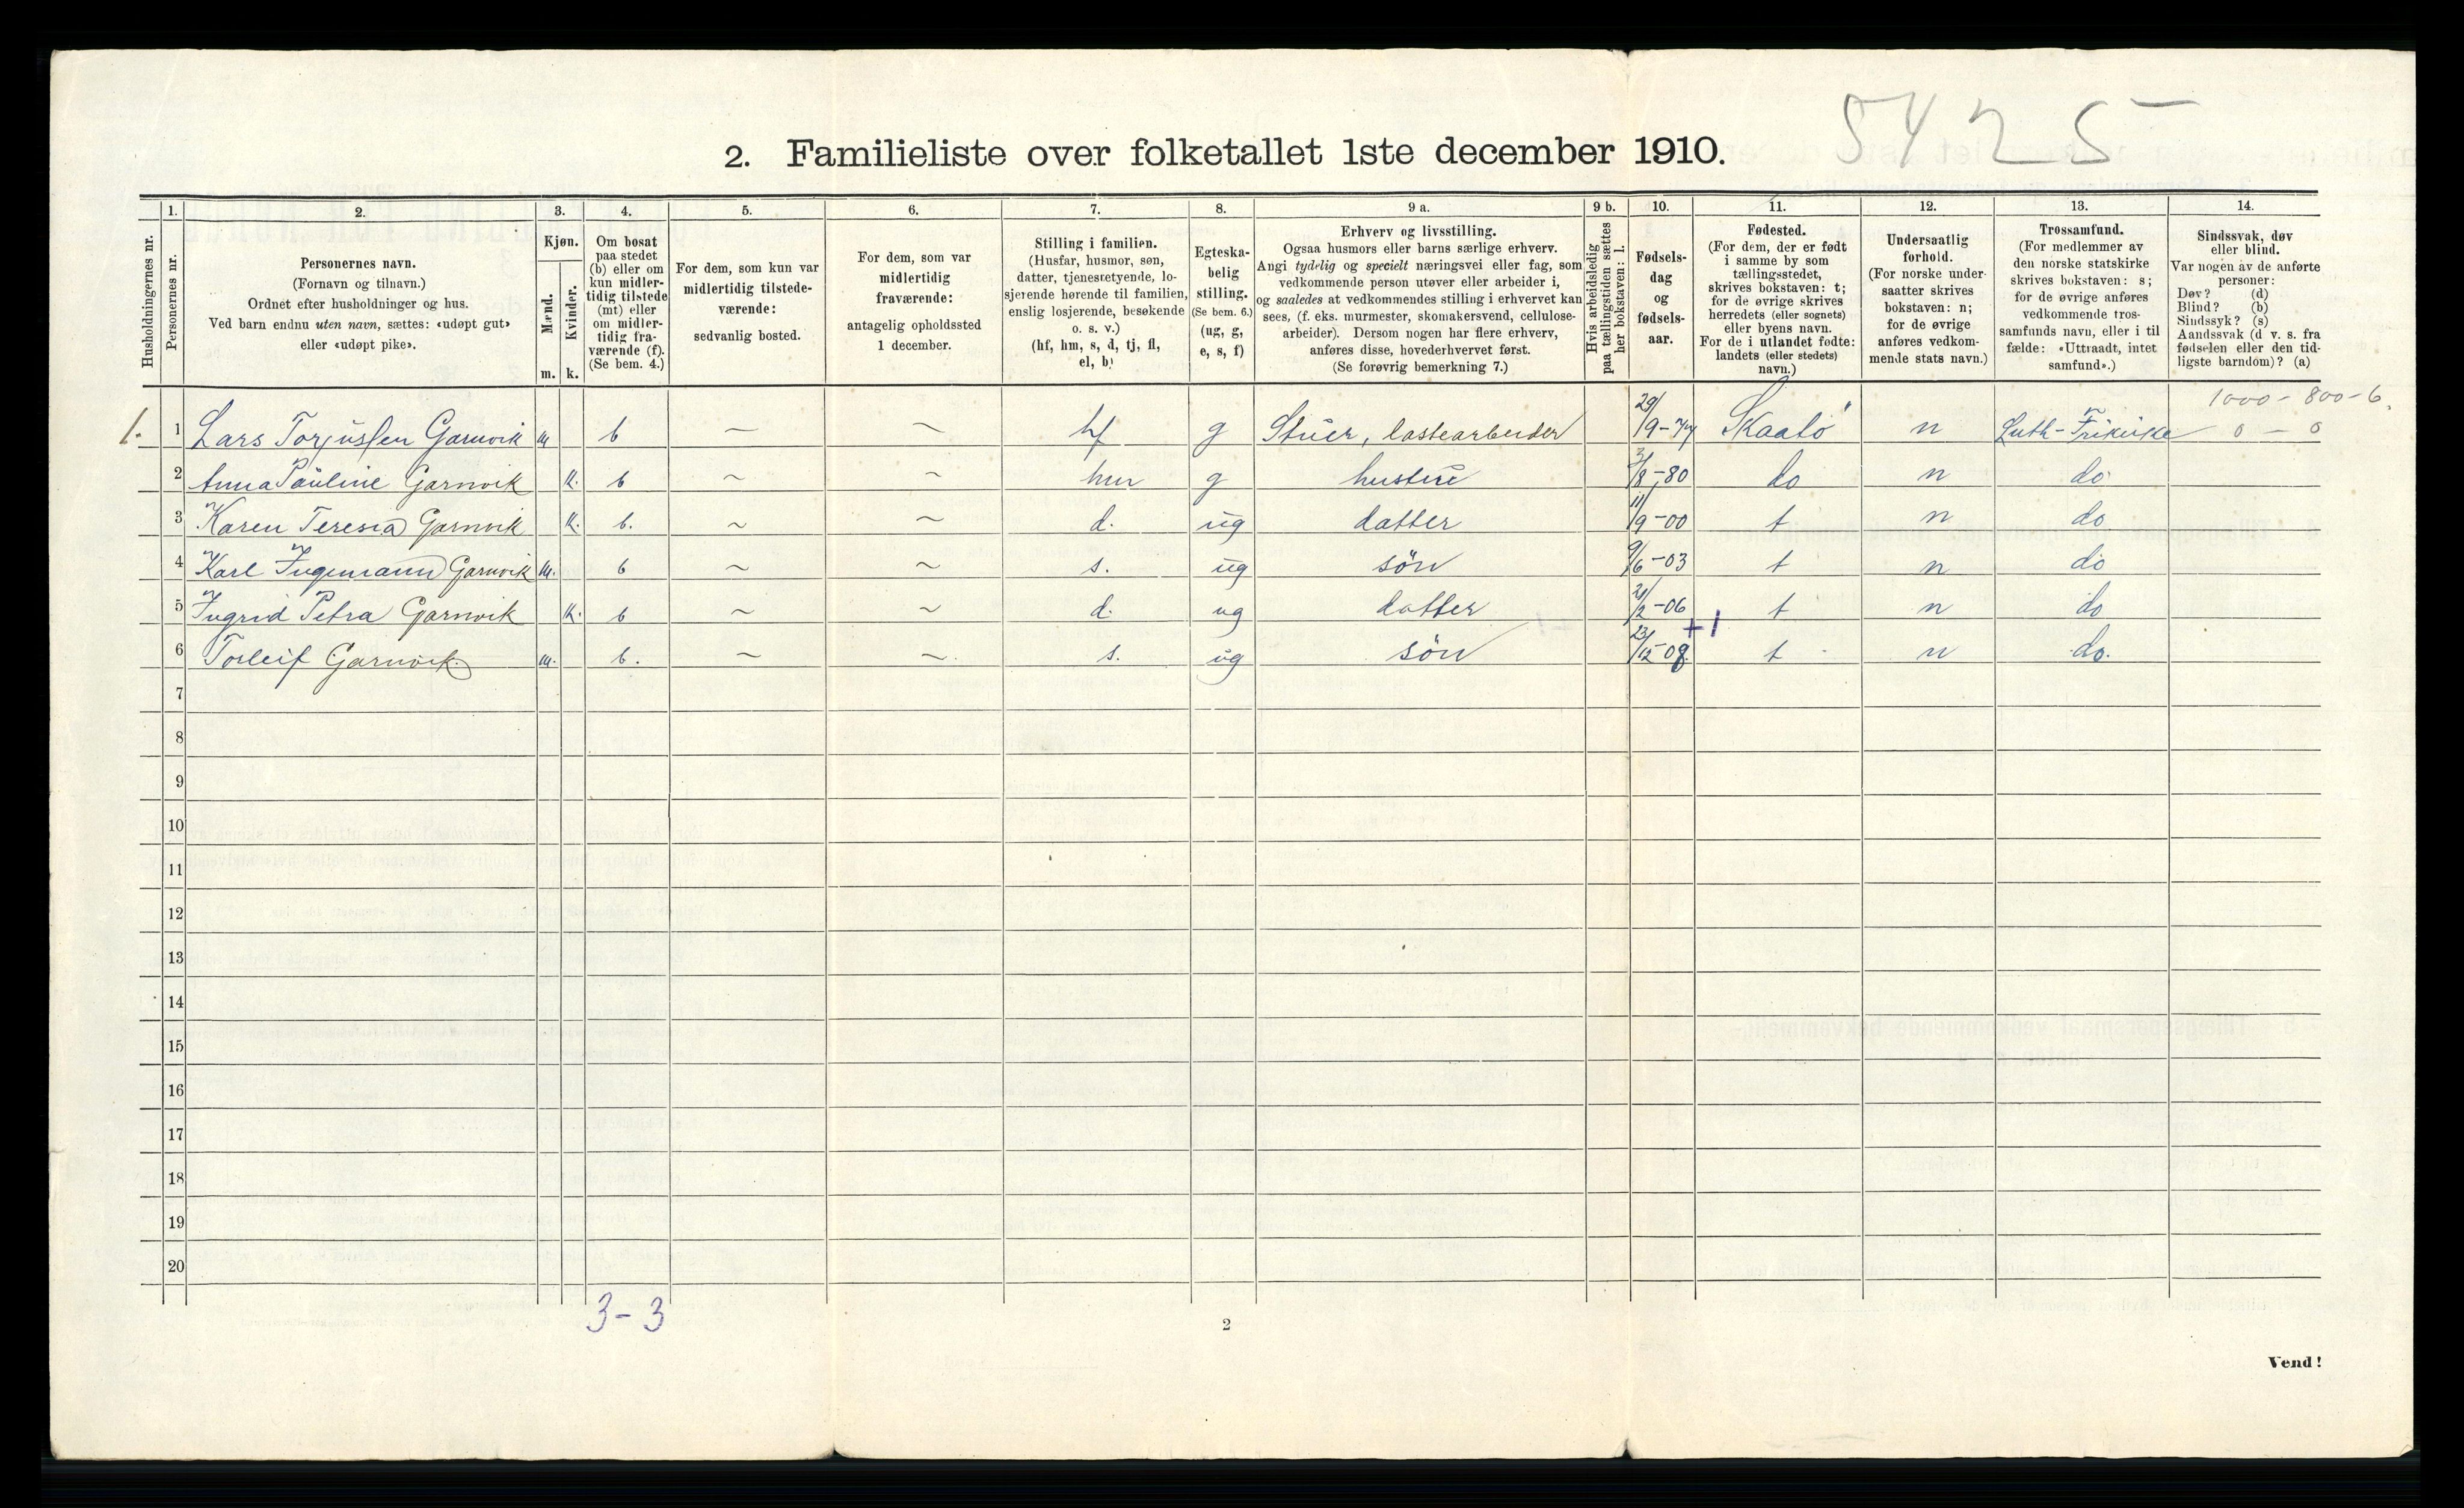 5425
2. Familieliste over folketallet 1ste december 1910.
Husholdningernes nr.
1. Personernes nr.
2. Personernes navn. (Fornavn og tilnavn.) Ordnet efter husholdninger og hus. Ved barn endnu uten navn, sættes: «udøpt gut» eller «udøpt pike».
3. Kjøn. Mænd. m. Kvinder. k.
4. Om bosat paa stedet (b) eller om kun midlertidig tilstede (mt) eller om midlertidig fraværende (f). (Se bem. 4.)
5. For dem, som kun var midlertidig tilstedeværende: sedvanlig bosted.
6. For dem, som var midlertidig fraværende: antagelig opholdssted 1 december.
7. Stilling i familien. (Husfar, husmor, søn, datter, tjenestetyende, losjerende hørende til familien, enslig losjerende, besøkende o. s. v.) (hf, hm, s, d, tj, fl, el, b)
8. Egteskabelig stilling. (Se bem. 6.) (ug, g, e, s, f)
9 a. Erhverv og livsstilling. Ogsaa husmors eller barns særlige erhverv. Angi tydelig og specielt næringsvei eller fag, som vedkommende person utøver eller arbeider i, og saaledes at vedkommendes stilling i erhvervet kan sees, (f. eks. murmester, skomakersvend, cellulosearbeider). Dersom nogen har flere erhverv, anføres disse, hovederhvervet først. (Se forøvrig bemerkning 7.)
9 b. Hvis arbeidsledig paa tællingstiden sættes her bokstaven: l.
10. Fødselsdag og fødselsaar.
11. Fødested. (For dem, der er født i samme by som tællingsstedet, skrives bokstaven: t; for de øvrige skrives herredets (eller sognets) eller byens navn. For de i utlandet fødte: landets (eller stedets) navn.)
12. Undersaatlig forhold. (For norske undersaatter skrives bokstaven: n; for de øvrige anføres vedkommende stats navn.)
13. Trossamfund. (For medlemmer av den norske statskirke skrives bokstaven: s; for de øvrige anføres vedkommende trossamfunds navn, eller i tilfælde: «Uttraadt, intet samfund».)
14. Sindssvak, døv eller blind. Var nogen av de anførte personer: Døv? (d) Blind? (b) Sindssyk? (s) Aandssvak (d v. s. fra fødselen eller den tidligste barndom)? (a)
1000 - 800 - 6.
1. 1 Lars Torjussen Garnvik m b — ~ hf g Stuer, lastearbeider 29/9-74 Skaatö n Luth-Frikirke 0 - 0
2 Anna Pauline Garnvik k. b ~ ~ hm g hustru 3/8-80 do n do
3 Karen Teresia Garnvik k. b. ~ ~ d. ug datter 11/9-00 t n do
4 Karl Ingemann Garnvik m. b ~ ~ s. ug sön 9/6-03 t n do
5 Ingrid Petra Garnvik k. b ~ ~ d. ug datter 21/2-06 t n do
+1
6 Torleif Garnvik. m. b. ~ ~ s. ug sön 23/12-08 t n do.
7
8
9
10
11
12
13
14
15
16
17
18
19
20
3 - 3
2
Vend!